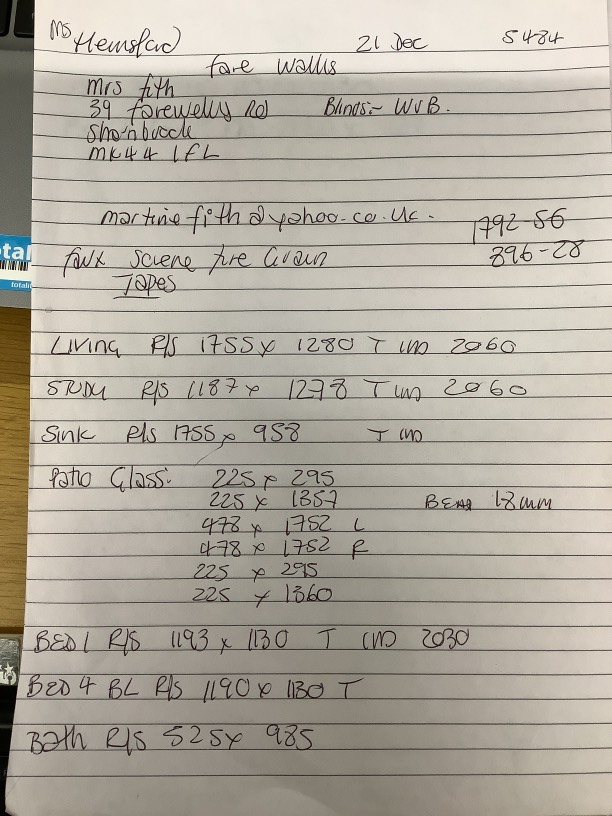 Ms Hemsford 21 Dec 5484
fare wallis
Mrs fith
39 farewells Rd Blinds:- WVB.
Sharnbuck
MK44 1FL
martine fith @ yahoo.co.uk. 1792-56
faux Screne fire Grain 896-28
Tapes
LIVING R/S 1755 x 1280 T 2060
STUDY R/S 1187 x 1278 T 2060
Sink R/S 1755 x 958 T
Patio Glass: 225 x 295
225 x 1357 BEAD 18mm
478 x 1752 L
478 x 1752 R
225 x 295
225 x 1360
BED 1 R/S 1193 x 1130 T 2030
BED 4 BL R/S 1190 x 1130 T
Bath R/S 525 x 985
tal
totall